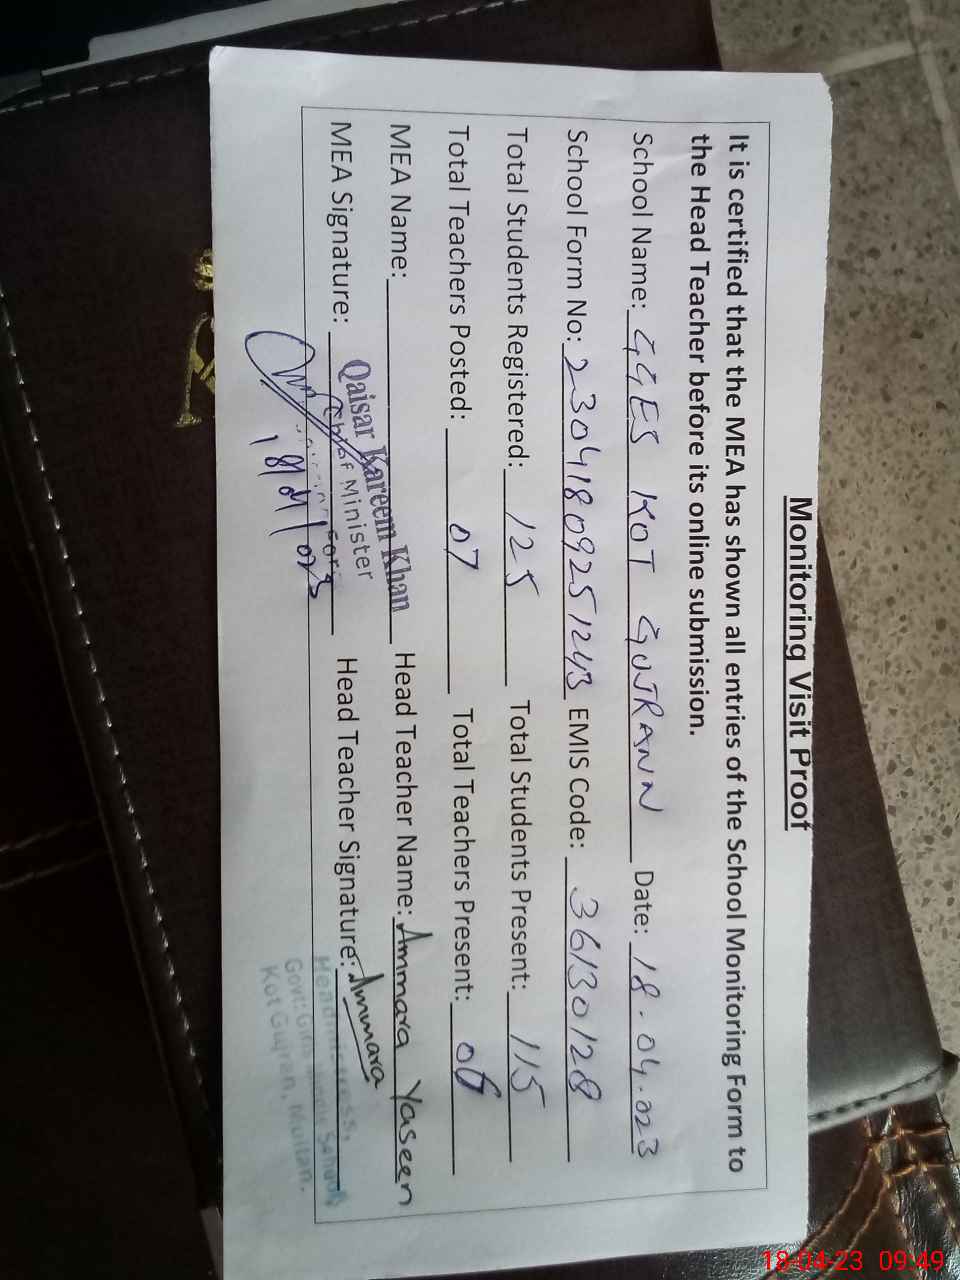 Monitoring Visit Proof
It is certified that the MEA has shown all entries of the School Monitoring Form to
the Head Teacher before its online submission.
School Name: GGES KOT GUJRANN Date: 18.04.023
School Form No: 23041809251243 EMIS Code: 36130128
Total Students Registered: 125 Total Students Present: 115
Total Teachers Posted: 07 Total Teachers Present: 06
MEA Name: Qaisar Kareem Khan Head Teacher Name: Ammara Yaseen
MEA Signature: Chief Minister Head Teacher Signature: Ammara
Headmistress,
Govt: Girls School
Kot Gujran, Multan.
18-04-23 09:49